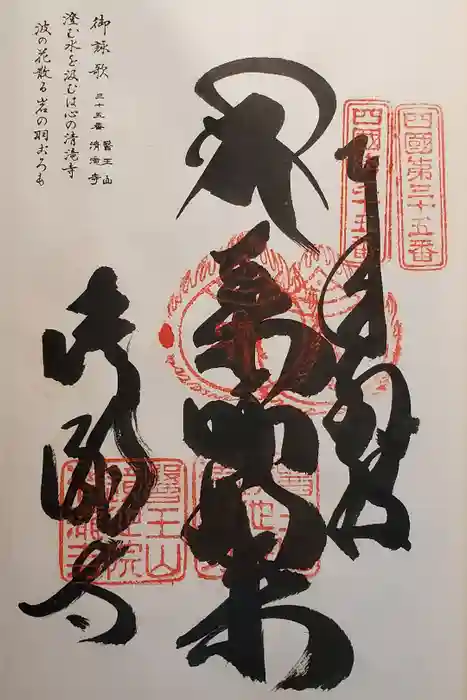 御詠歌 三十五番 醫王山 清滝寺
澄む水を汲むは心の清滝寺
波の花散る岩の羽ごろも
四國第三十五番
四國第三十五番
奉納
薬師如来
清瀧寺
醫王山